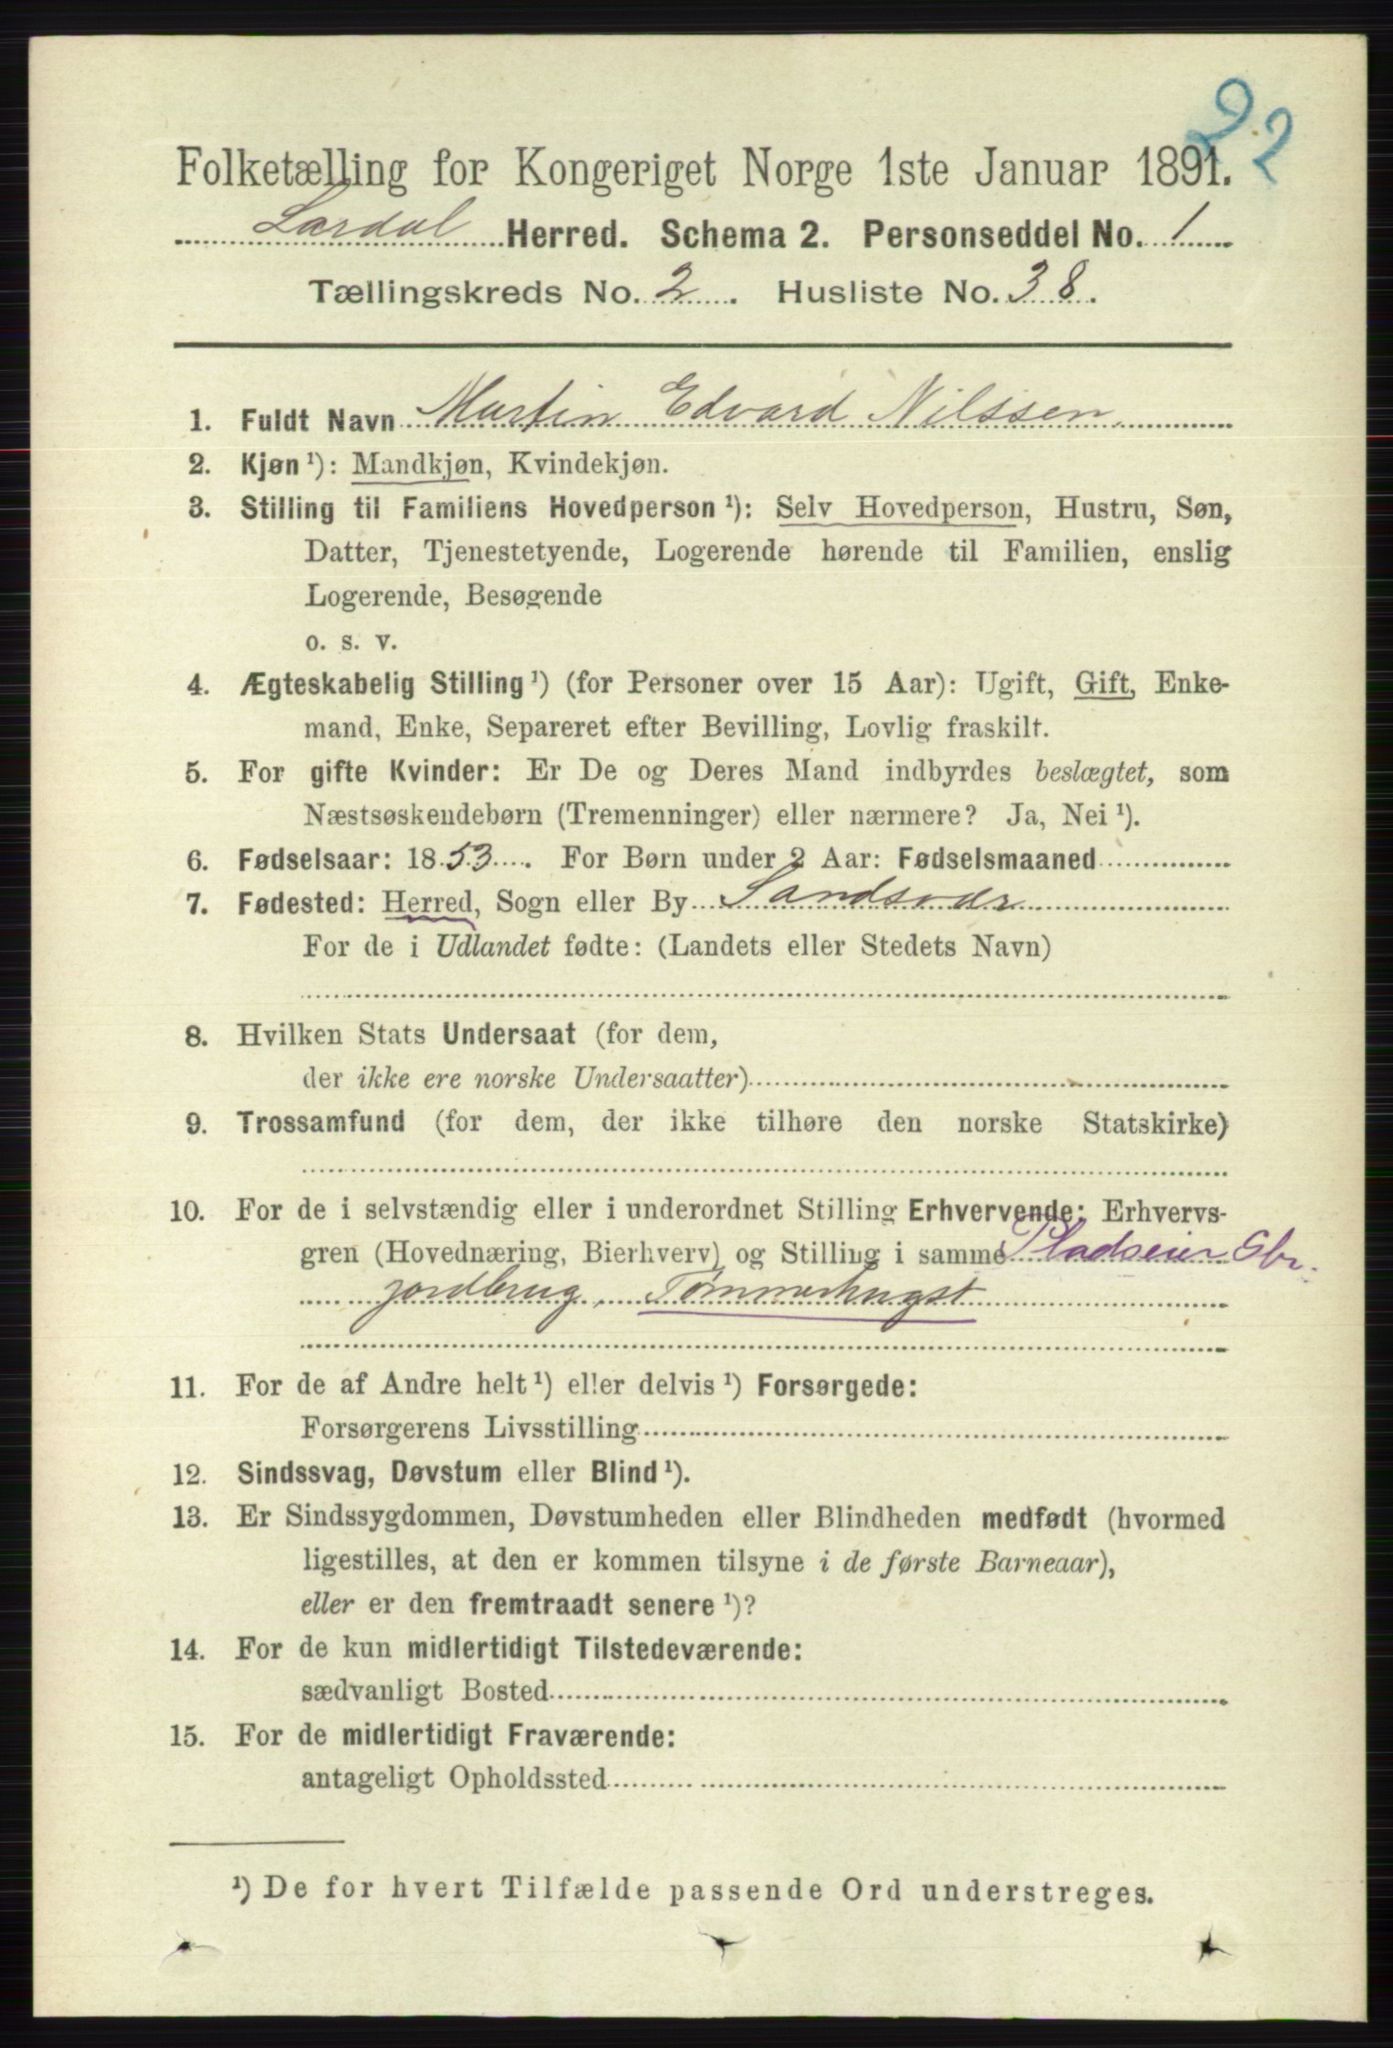 22
Folketælling for Kongeriget Norge 1ste Januar 1891.
Lardal Herred. Schema 2. Personseddel No. 1
Tællingskreds No. 2. Husliste No. 38.
1. Fuldt Navn Martin Edvard Nilssen.
2. Kjøn ¹): Mandkjøn, Kvindekjøn.
3. Stilling til Familiens Hovedperson ¹): Selv Hovedperson, Hustru, Søn,
Datter, Tjenestetyende, Logerende hørende til Familien, enslig
Logerende, Besøgende
o. s. v.
4. Ægteskabelig Stilling ¹) (for Personer over 15 Aar): Ugift, Gift, Enke-
mand, Enke, Separeret efter Bevilling, Lovlig fraskilt.
5. For gifte Kvinder: Er De og Deres Mand indbyrdes beslægtet, som
Næstsøskendebørn (Tremenninger) eller nærmere? Ja, Nei ¹).
6. Fødselsaar: 1853. For Børn under 2 Aar: Fødselsmaaned
7. Fødested: Herred, Sogn eller By Sandsvær
For de i Udlandet fødte: (Landets eller Stedets Navn)
8. Hvilken Stats Undersaat (for dem,
der ikke ere norske Undersaatter)
9. Trossamfund (for dem, der ikke tilhøre den norske Statskirke)
10. For de i selvstændig eller i underordnet Stilling Erhvervende: Erhvervs-
gren (Hovednæring, Bierhverv) og Stilling i samme Pladseier Gbr.
jordbrug, Tømmerhugst
11. For de af Andre helt ¹) eller delvis ¹) Forsørgede:
Forsørgerens Livsstilling
12. Sindssvag, Døvstum eller Blind ¹).
13. Er Sindssygdommen, Døvstumheden eller Blindheden medfødt (hvormed
ligestilles, at den er kommen tilsyne i de første Barneaar),
eller er den fremtraadt senere ¹)?
14. For de kun midlertidigt Tilstedeværende:
sædvanligt Bosted
15. For de midlertidigt Fraværende:
antageligt Opholdssted
¹) De for hvert Tilfælde passende Ord understreges.